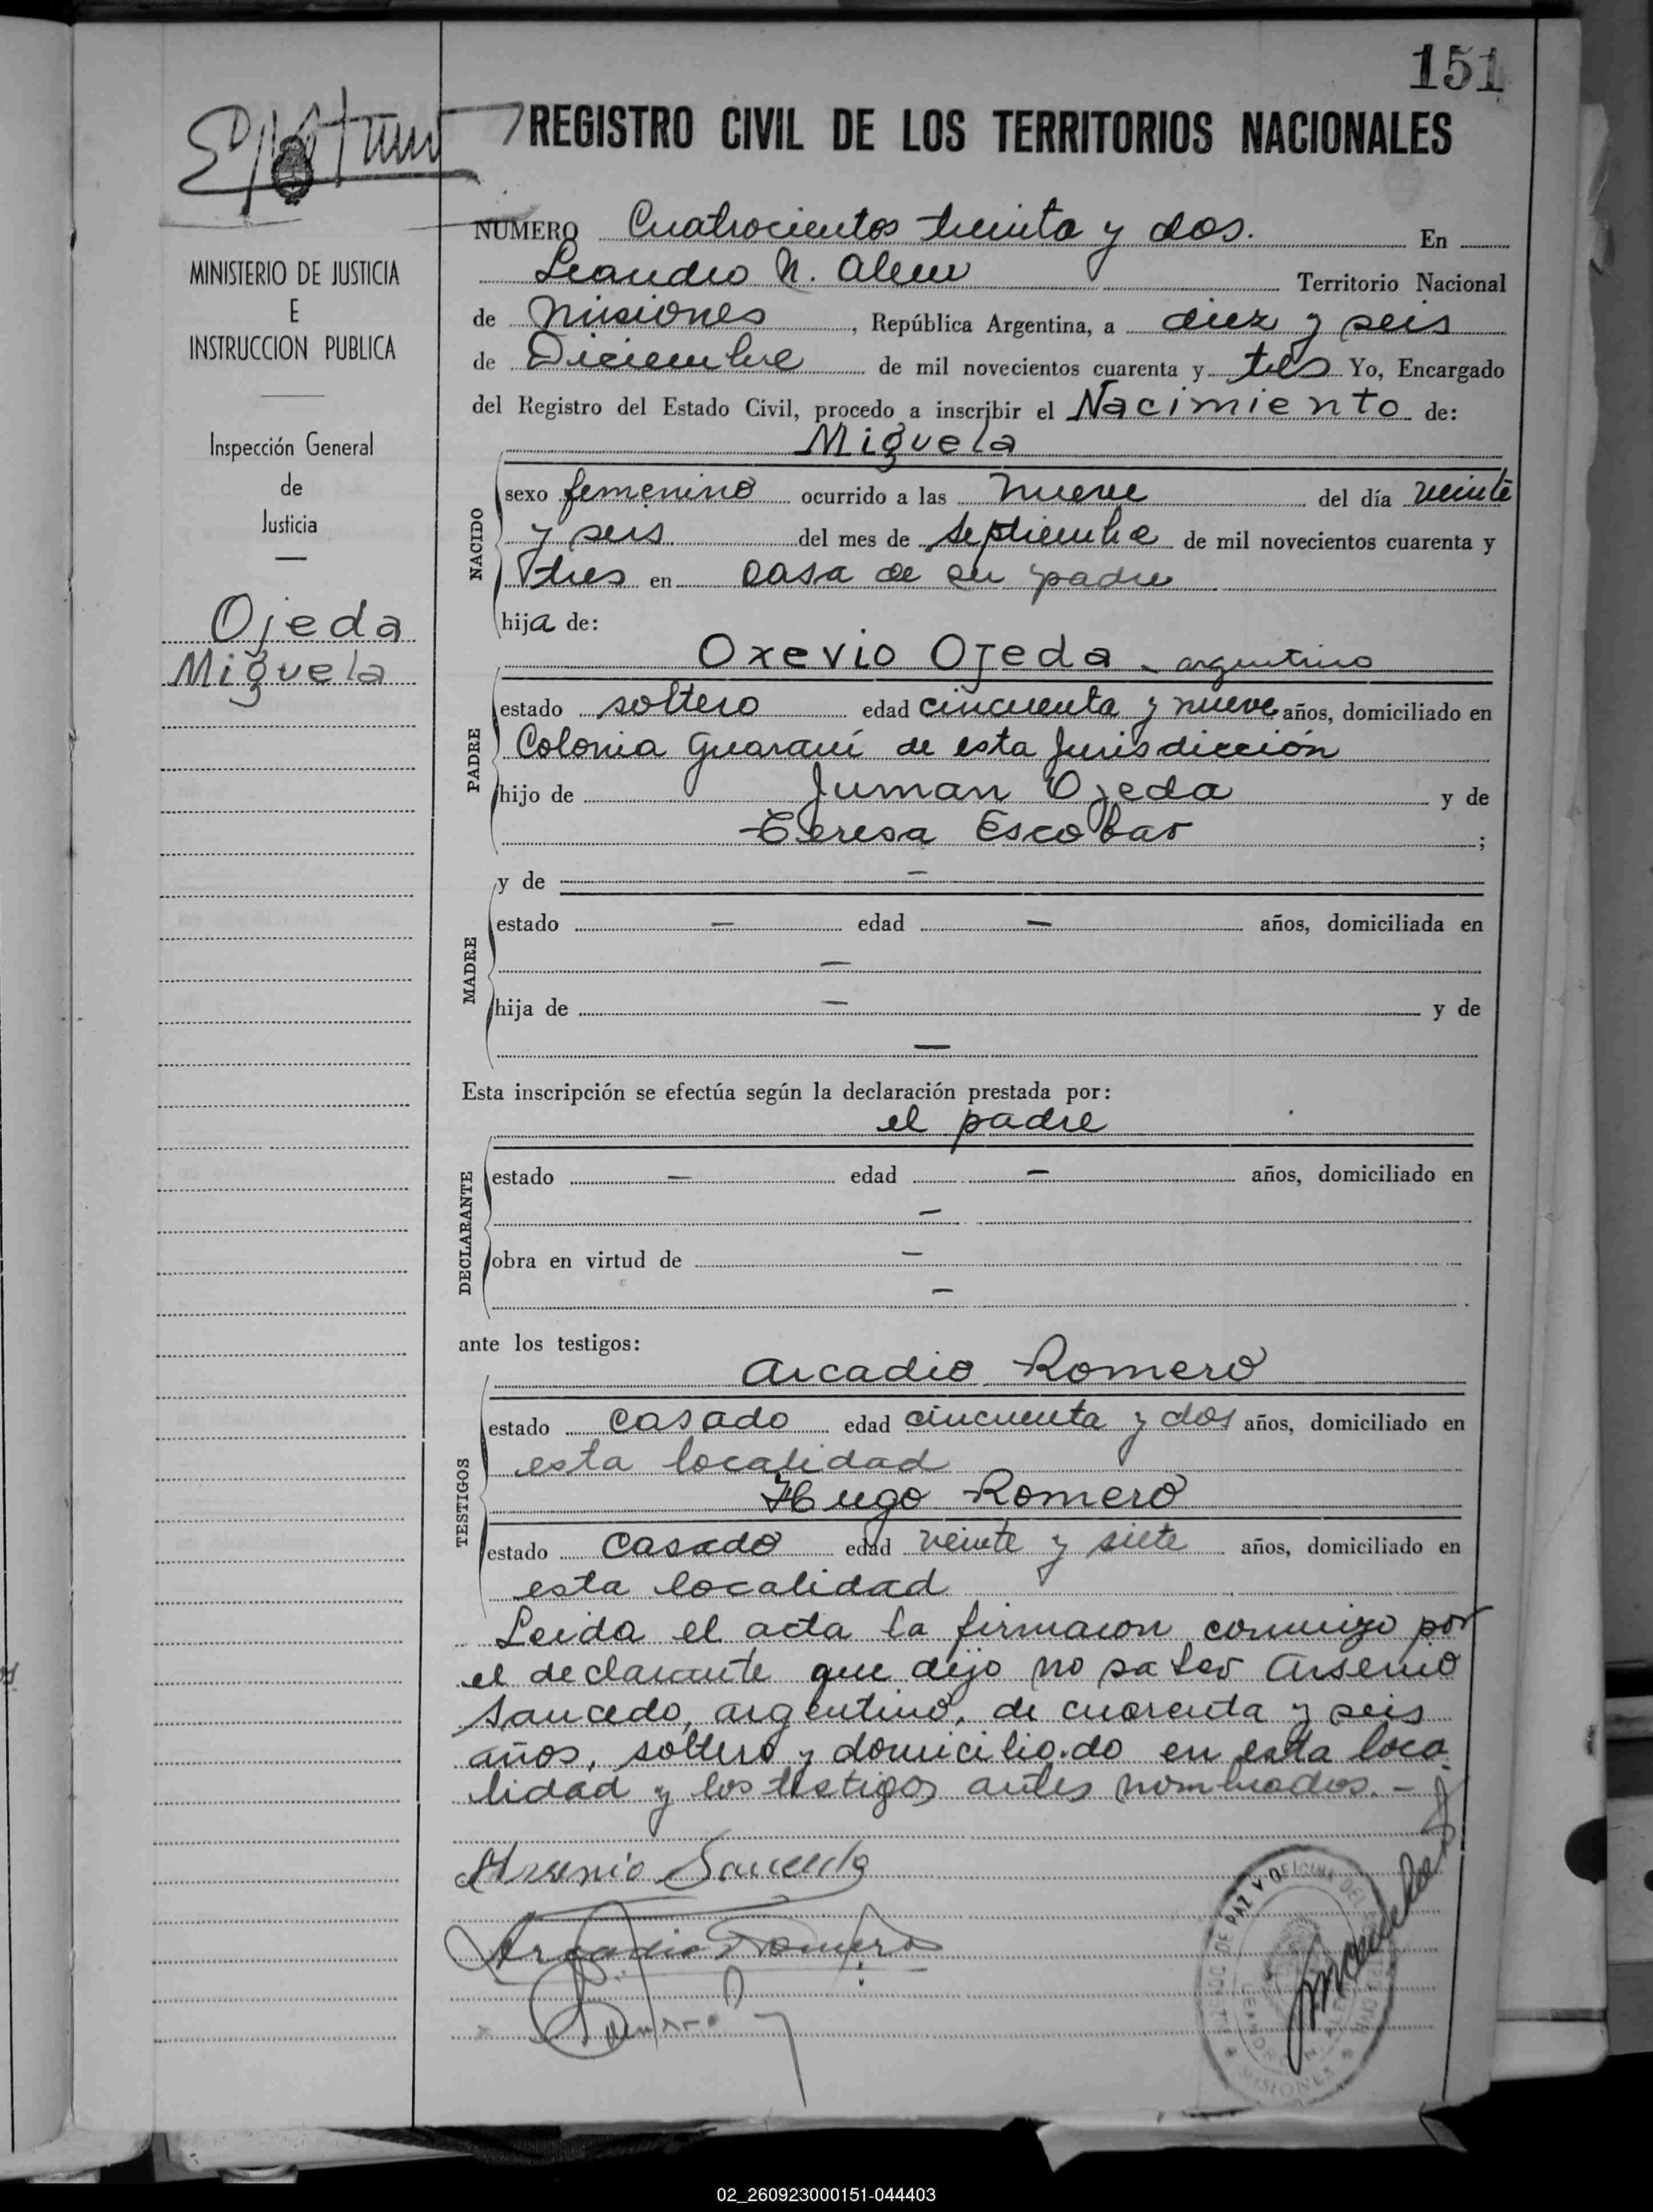 151
REGISTRO CIVIL DE LOS TERRITORIOS NACIONALES
MINISTERIO DE JUSTICIA
E
INSTRUCCION PUBLICA
Inspección General
de
Justicia
Ojeda
Miguela
NUMERO Cuatrocientos treinta y dos. En
Leandro N. Alem Territorio Nacional
de Misiones, República Argentina, a diez y seis
de Diciembre de mil novecientos cuarenta y tres Yo, Encargado
del Registro del Estado Civil, procedo a inscribir el Nacimiento de:
Miguela
NACIDO
sexo femenino ocurrido a las nueve del día veinte
y seis del mes de septiembre de mil novecientos cuarenta y
tres en casa de su padre
hija de:
Oxevio Ojeda - argentino
PADRE
estado soltero edad cincuenta y nueve años, domiciliado en
Colonia Guaraní de esta Jurisdicción
hijo de Juman Ojeda y de
Teresa Escobar ;
MADRE
y de —
estado — edad — años, domiciliada en
—
hija de — y de
—
Esta inscripción se efectúa según la declaración prestada por:
el padre
DECLARANTE
estado — edad — años, domiciliado en
—
obra en virtud de —
—
ante los testigos:
TESTIGOS
Arcadio Romero
estado casado edad cincuenta y dos años, domiciliado en
esta localidad
Hugo Romero
estado casado edad veinte y siete años, domiciliado en
esta localidad
Leida el acta la firmaron conmigo por
el declarante que dijo no saber Arsenio
Saucedo, argentino, de cuarenta y seis
años, soltero y domiciliado en esta loca
lidad y los testigos antes nombrados. -
Arsenio Saucedo
Arcadio Romero
JUZGADO DE PAZ Y OFICINA DEL REGISTRO CIVIL
LEANDRO N. ALEM
MISIONES
02_260923000151-044403